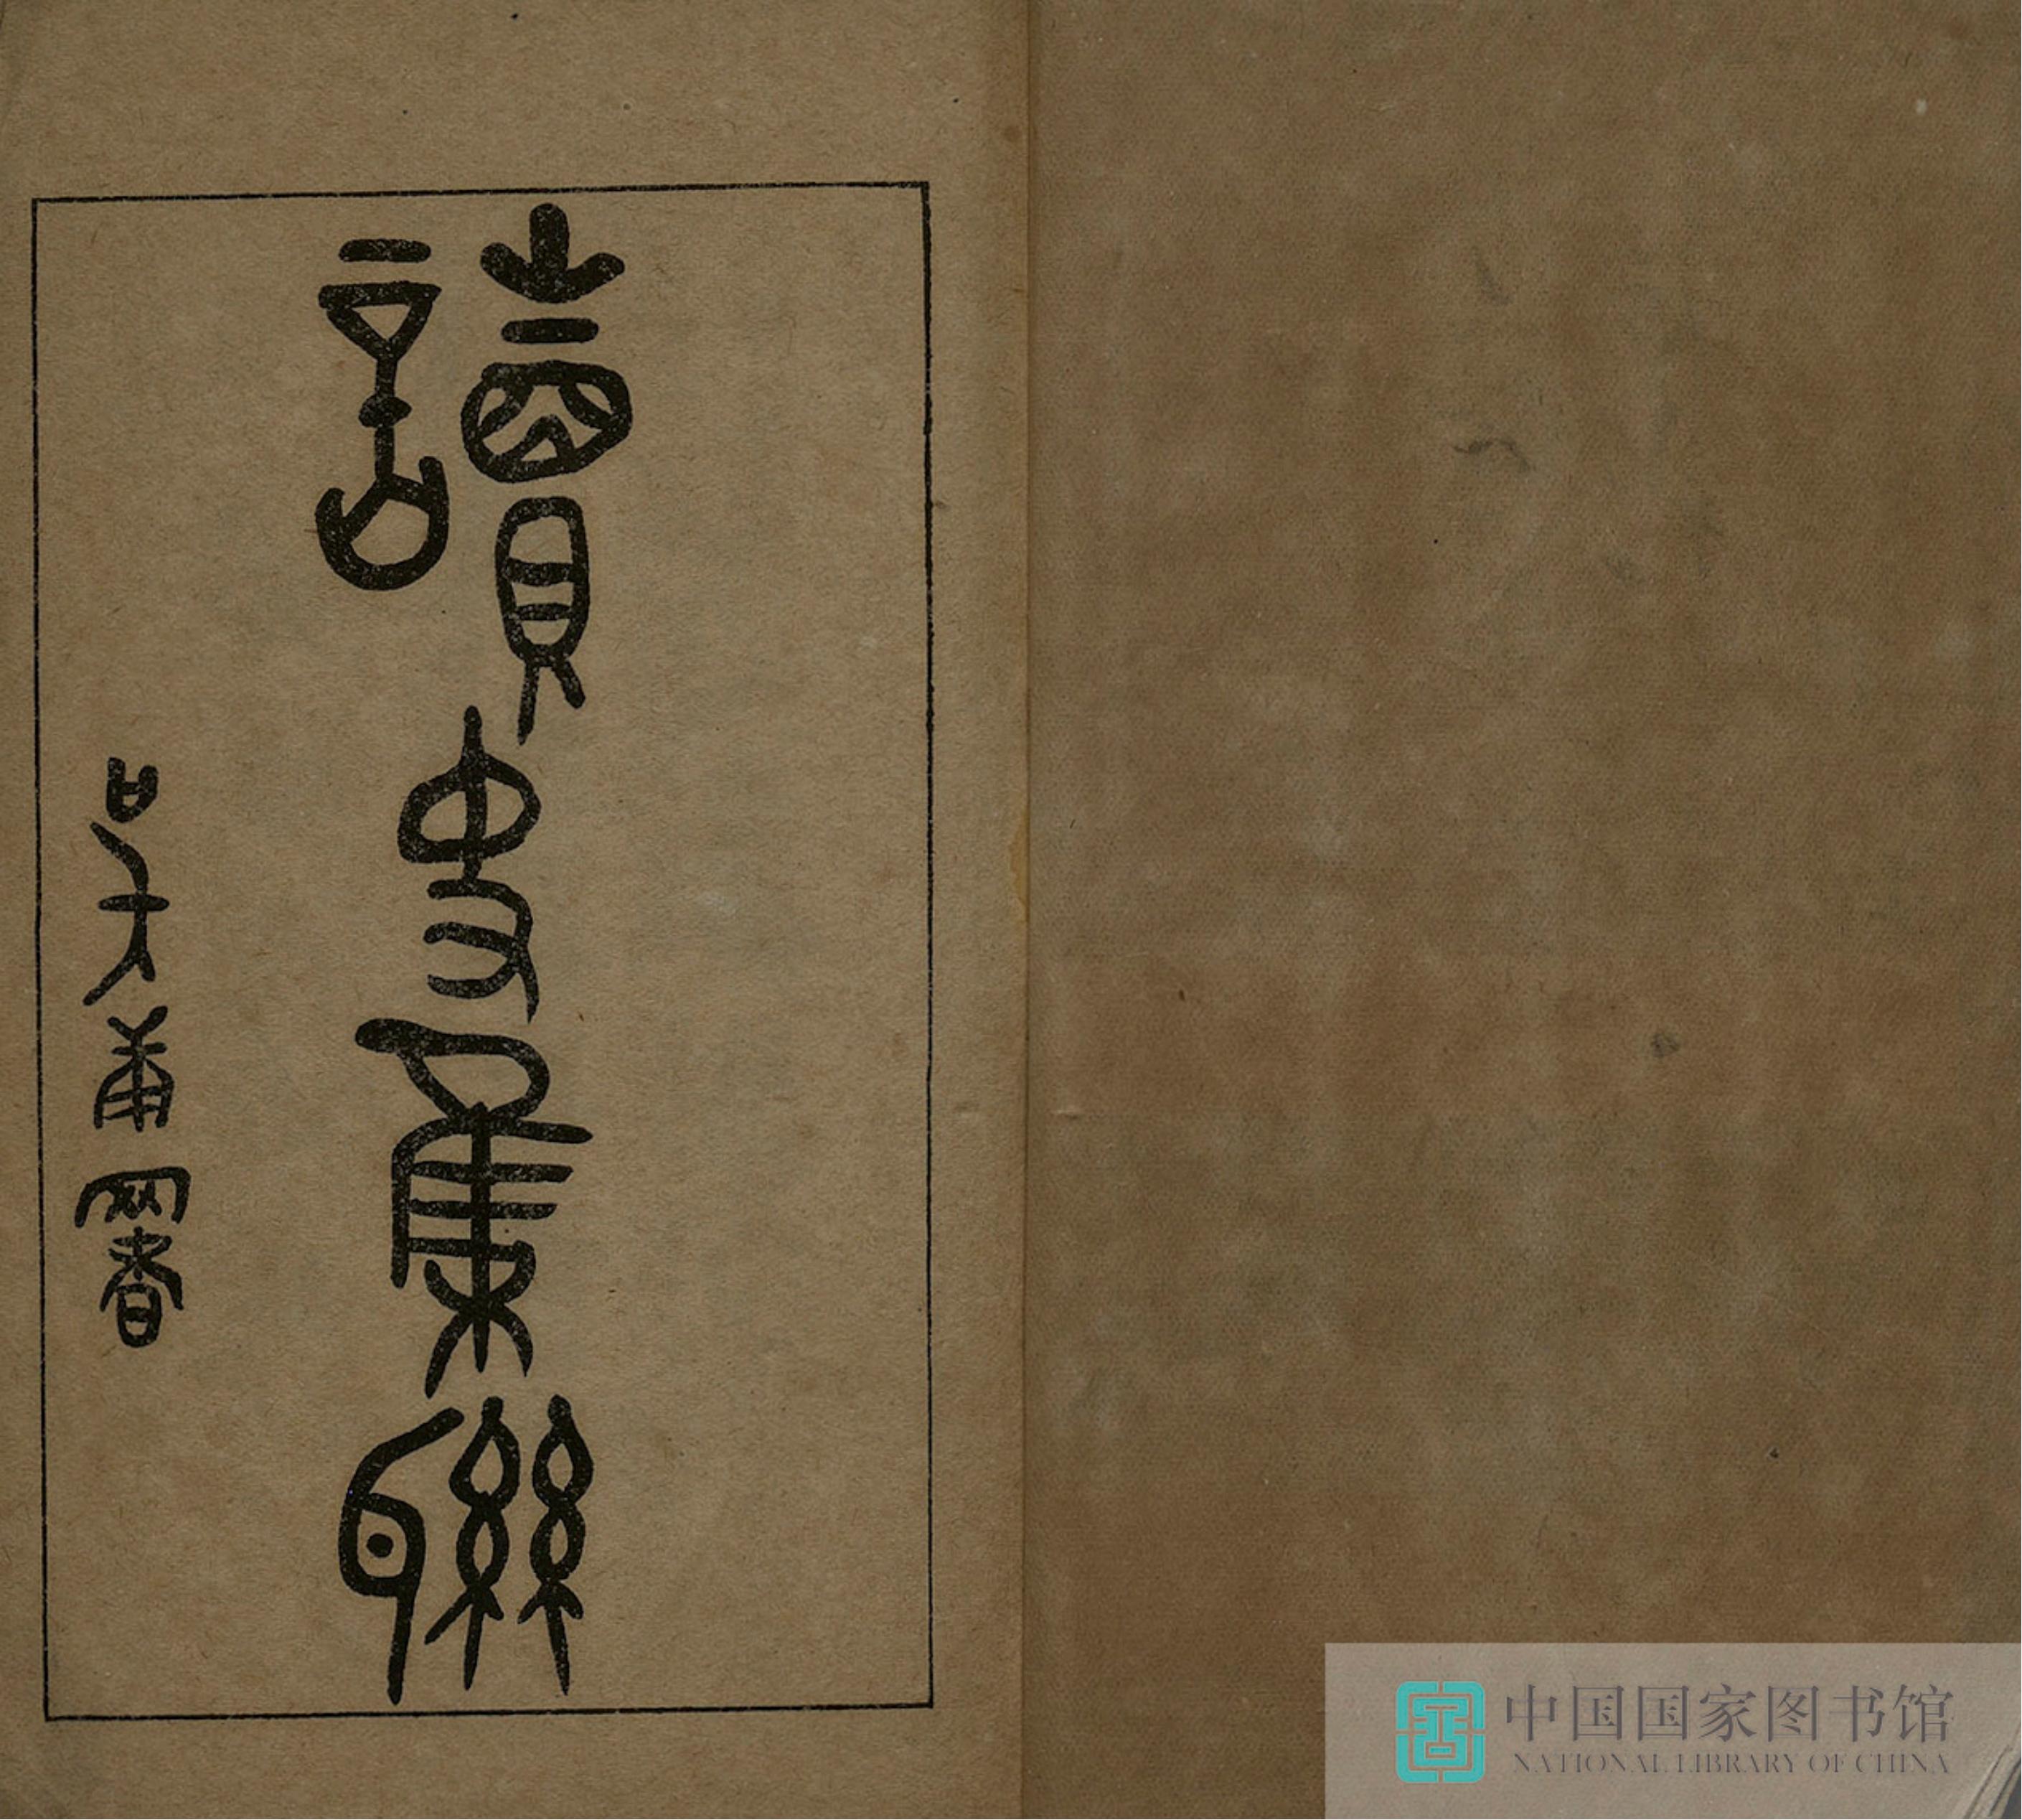 讀史集聯
吳大䔕署
中国国家图书馆
NATIONAL LIBRARY OF CHINA